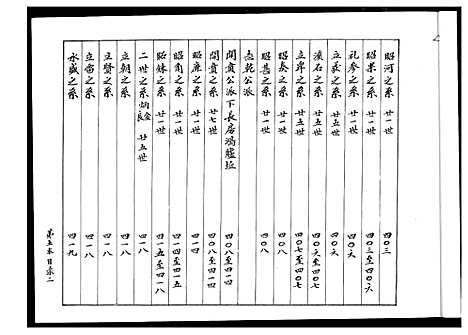 昭河之系 廿一世 四〇三
昭果之系 廿一世 四〇三至四〇六
礼参之系 廿一世 四〇六
立茲之系 廿五世 四〇六
滾石之系 廿五世 四〇六至四〇七
立岸之系 廿五世 四〇七至四〇七
昭泰之系 廿一世 四〇八
昭甚之系 廿一世 四〇八
乾公派
開貴公派下長房 四〇八至四一四
開貴之系 廿七世 四〇八至四一四
昭廉之系 廿一世 四一四
昭角之系 廿一世 四一四至四一五
昭銖之系 廿一世 四一五至四一八
二世之系 廿五世 四一八
立朝之系 四一八
立賢之系 四一八
立富之系 四一八
永盛之系 四一九
第五本目录二